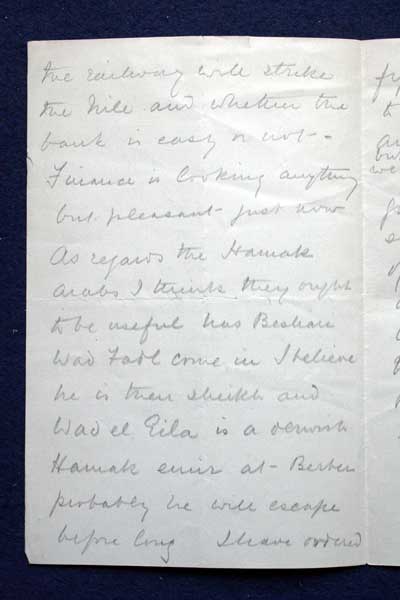 the railway will strike
the Nile and whether the
bank is easy or not -
Finance is looking anything
but pleasant just now
As regards the Hamak
Arabs I think they ought
to be useful has Beshari
Wad Fadl come in I believe
he is their sheikh and
Wad el Eila is a dervish
Hamak emir at Berber
probably he will escape
before long I have ordered